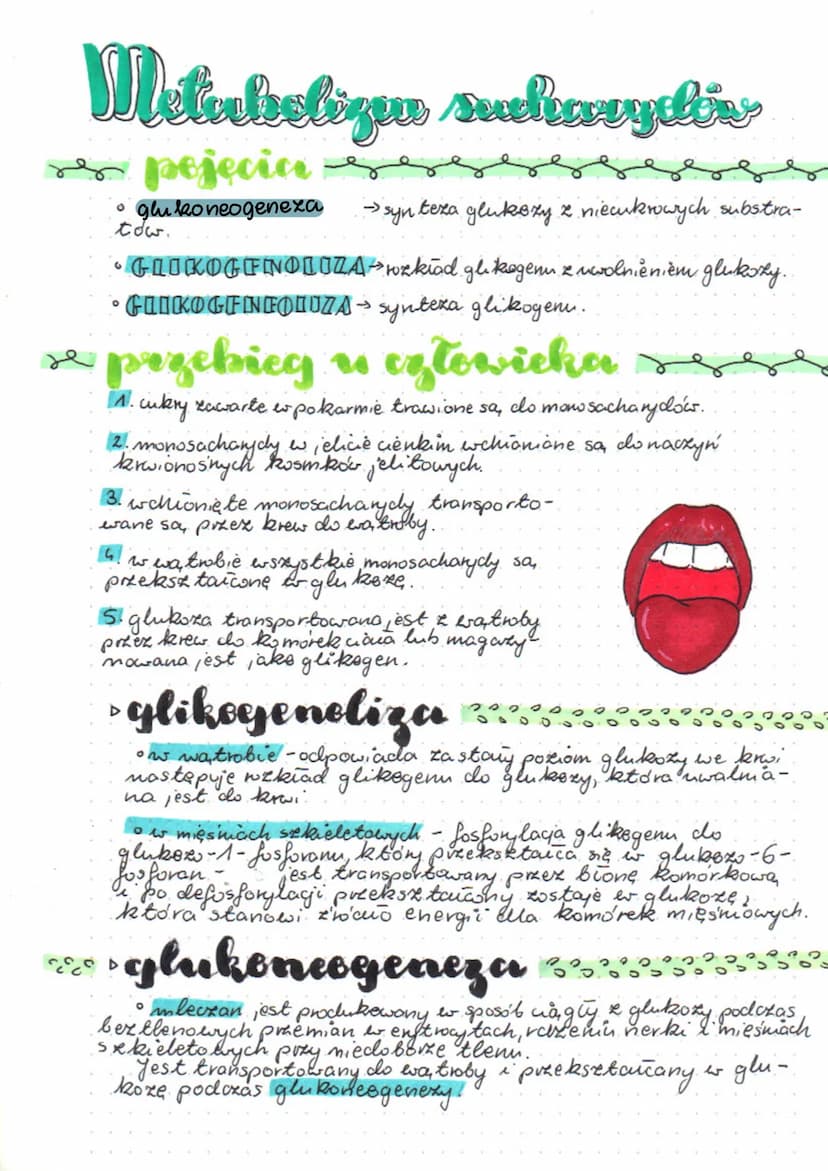 Metabolizm sacharydów
pojęcia
glukoneogeneza → synteza glukozy z niecukrowych substra-
tów.
GLIKOGENOLIZA → rozkład glikogenu z uwolnieniem glukozy.
GLIKOGENEOLIZA → synteza glikogenu.
przebieg u człowieka
1. cukry zawarte w pokarmie trawione są do monosacharydów.
2. monosacharydy w jelicie cienkim wchłaniane są do naczyń
krwionośnych kosmków jelitowych.
3. wchłonięte monosacharydy transporto-
wane są przez krew do wątroby.
4. w wątrobie wszystkie monosacharydy są
przekształcone w glukozę.
5. glukoza transportowana jest z wątroby
przez krew do komórek ciała lub magazy-
nowana jest jako glikogen.
glikogenoliza
w wątrobie - odpowiada za stały poziom glukozy we krwi
następuje rozkład glikogenu do glukozy, która uwalnia-
na jest do krwi
w mięśniach szkieletowych - fosforylacja glikogenu do
glukozo-1-fosforanu, który przekształca się w glukozo-6-
fosforan - jest transportowany przez błonę komórkową
i po defosforylacji przekształcony zostaje w glukozę,
która stanowi źródło energii dla komórek mięśniowych.
glukoneogeneza
mleczan jest produkowany w sposób ciągły z glukozy podczas
beztlenowych przemian w erytrocytach, rdzeniu nerki i mięśniach
szkieletowych przy niedoborze tlenu.
Jest transportowany do wątroby i przekształcany w glu-
kozę podczas glukoneogenezy.